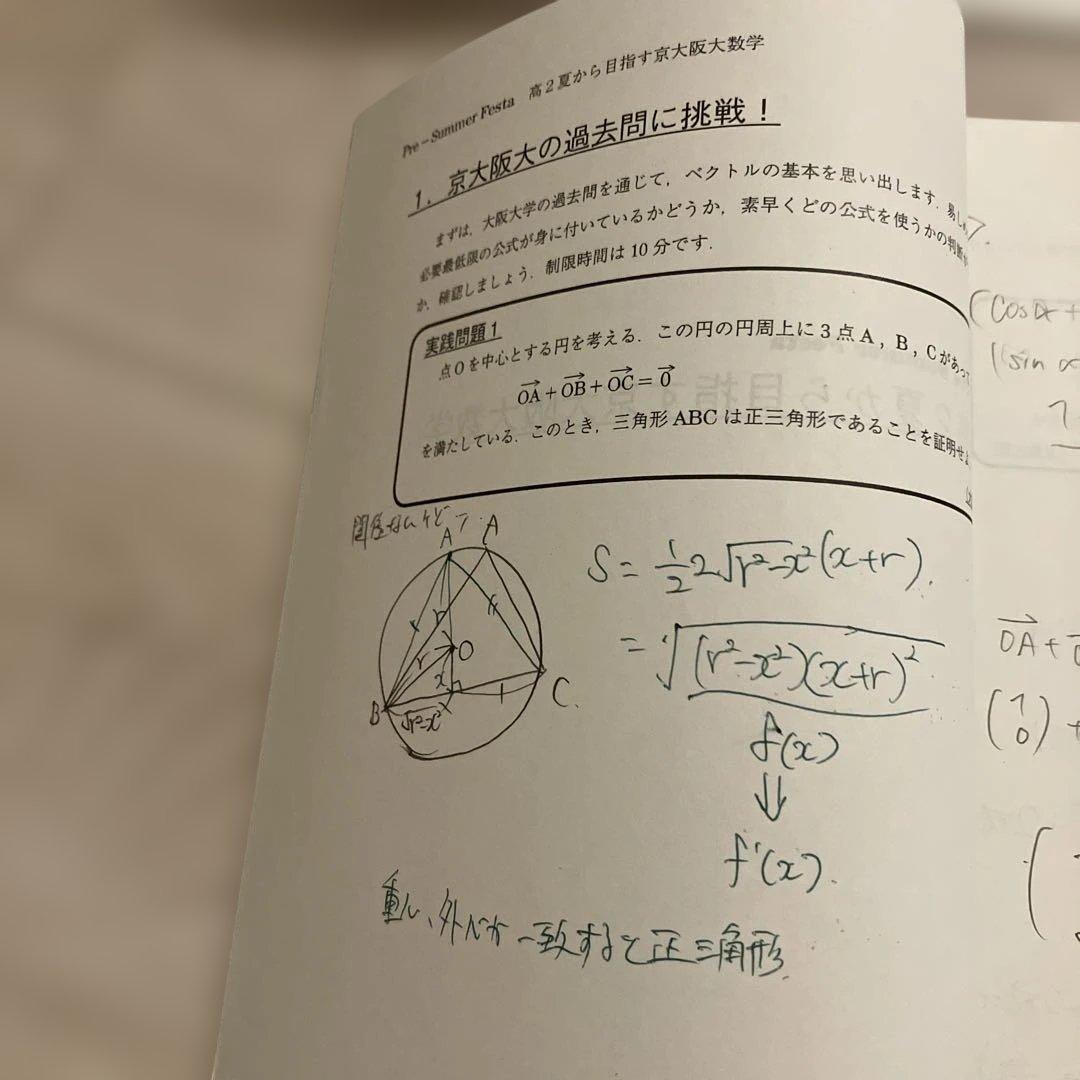 Pre－Summer Festa　高２夏から目指す京大阪大数学
1．京大阪大の過去問に挑戦！
まずは，大阪大学の過去問を通じて，ベクトルの基本を思い出します．易し
必要最低限の公式が身に付いているかどうか，素早くどの公式を使うかの判断
か，確認しましょう．制限時間は 10 分です．
実践問題 1
点 O を中心とする円を考える．この円の円周上に 3 点 A，B，C があって，
OA＋OB＋OC＝0
を満たしている．このとき，三角形 ABC は正三角形であることを証明せよ
関係ないけど
A A
r r
r O
x
B √r²-x² C
S = 1/2 2√r²-x² (x+r).
= √(r²-x²)(x+r)²
f(x)
⇓
f'(x).
重心、外心が一致すると正三角形.
(cosα+
(sin α
OA +
(1
0) +